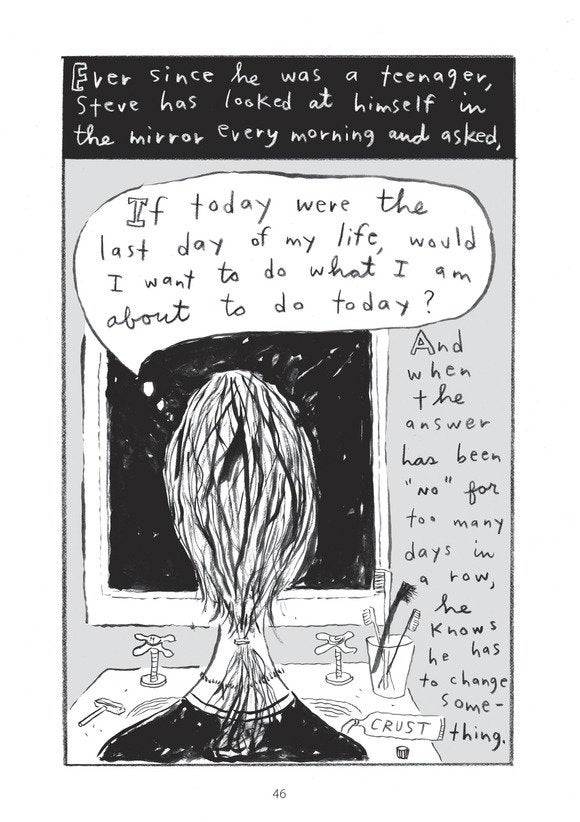 Ever since he was a teenager,
Steve has looked at himself in
the mirror every morning and asked,
If today were the
last day of my life, would
I want to do what I am
about to do today?
And
when
the
answer
has been
"no" for
too many
days in
a row,
he
knows
he has
to change
some-
thing.
CRUST
46